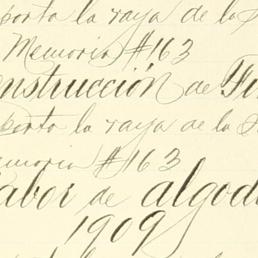 porta la raya de la
Memoria #163
nstrucción de
porta la raya de la
emoria #163
abor de algod
1909